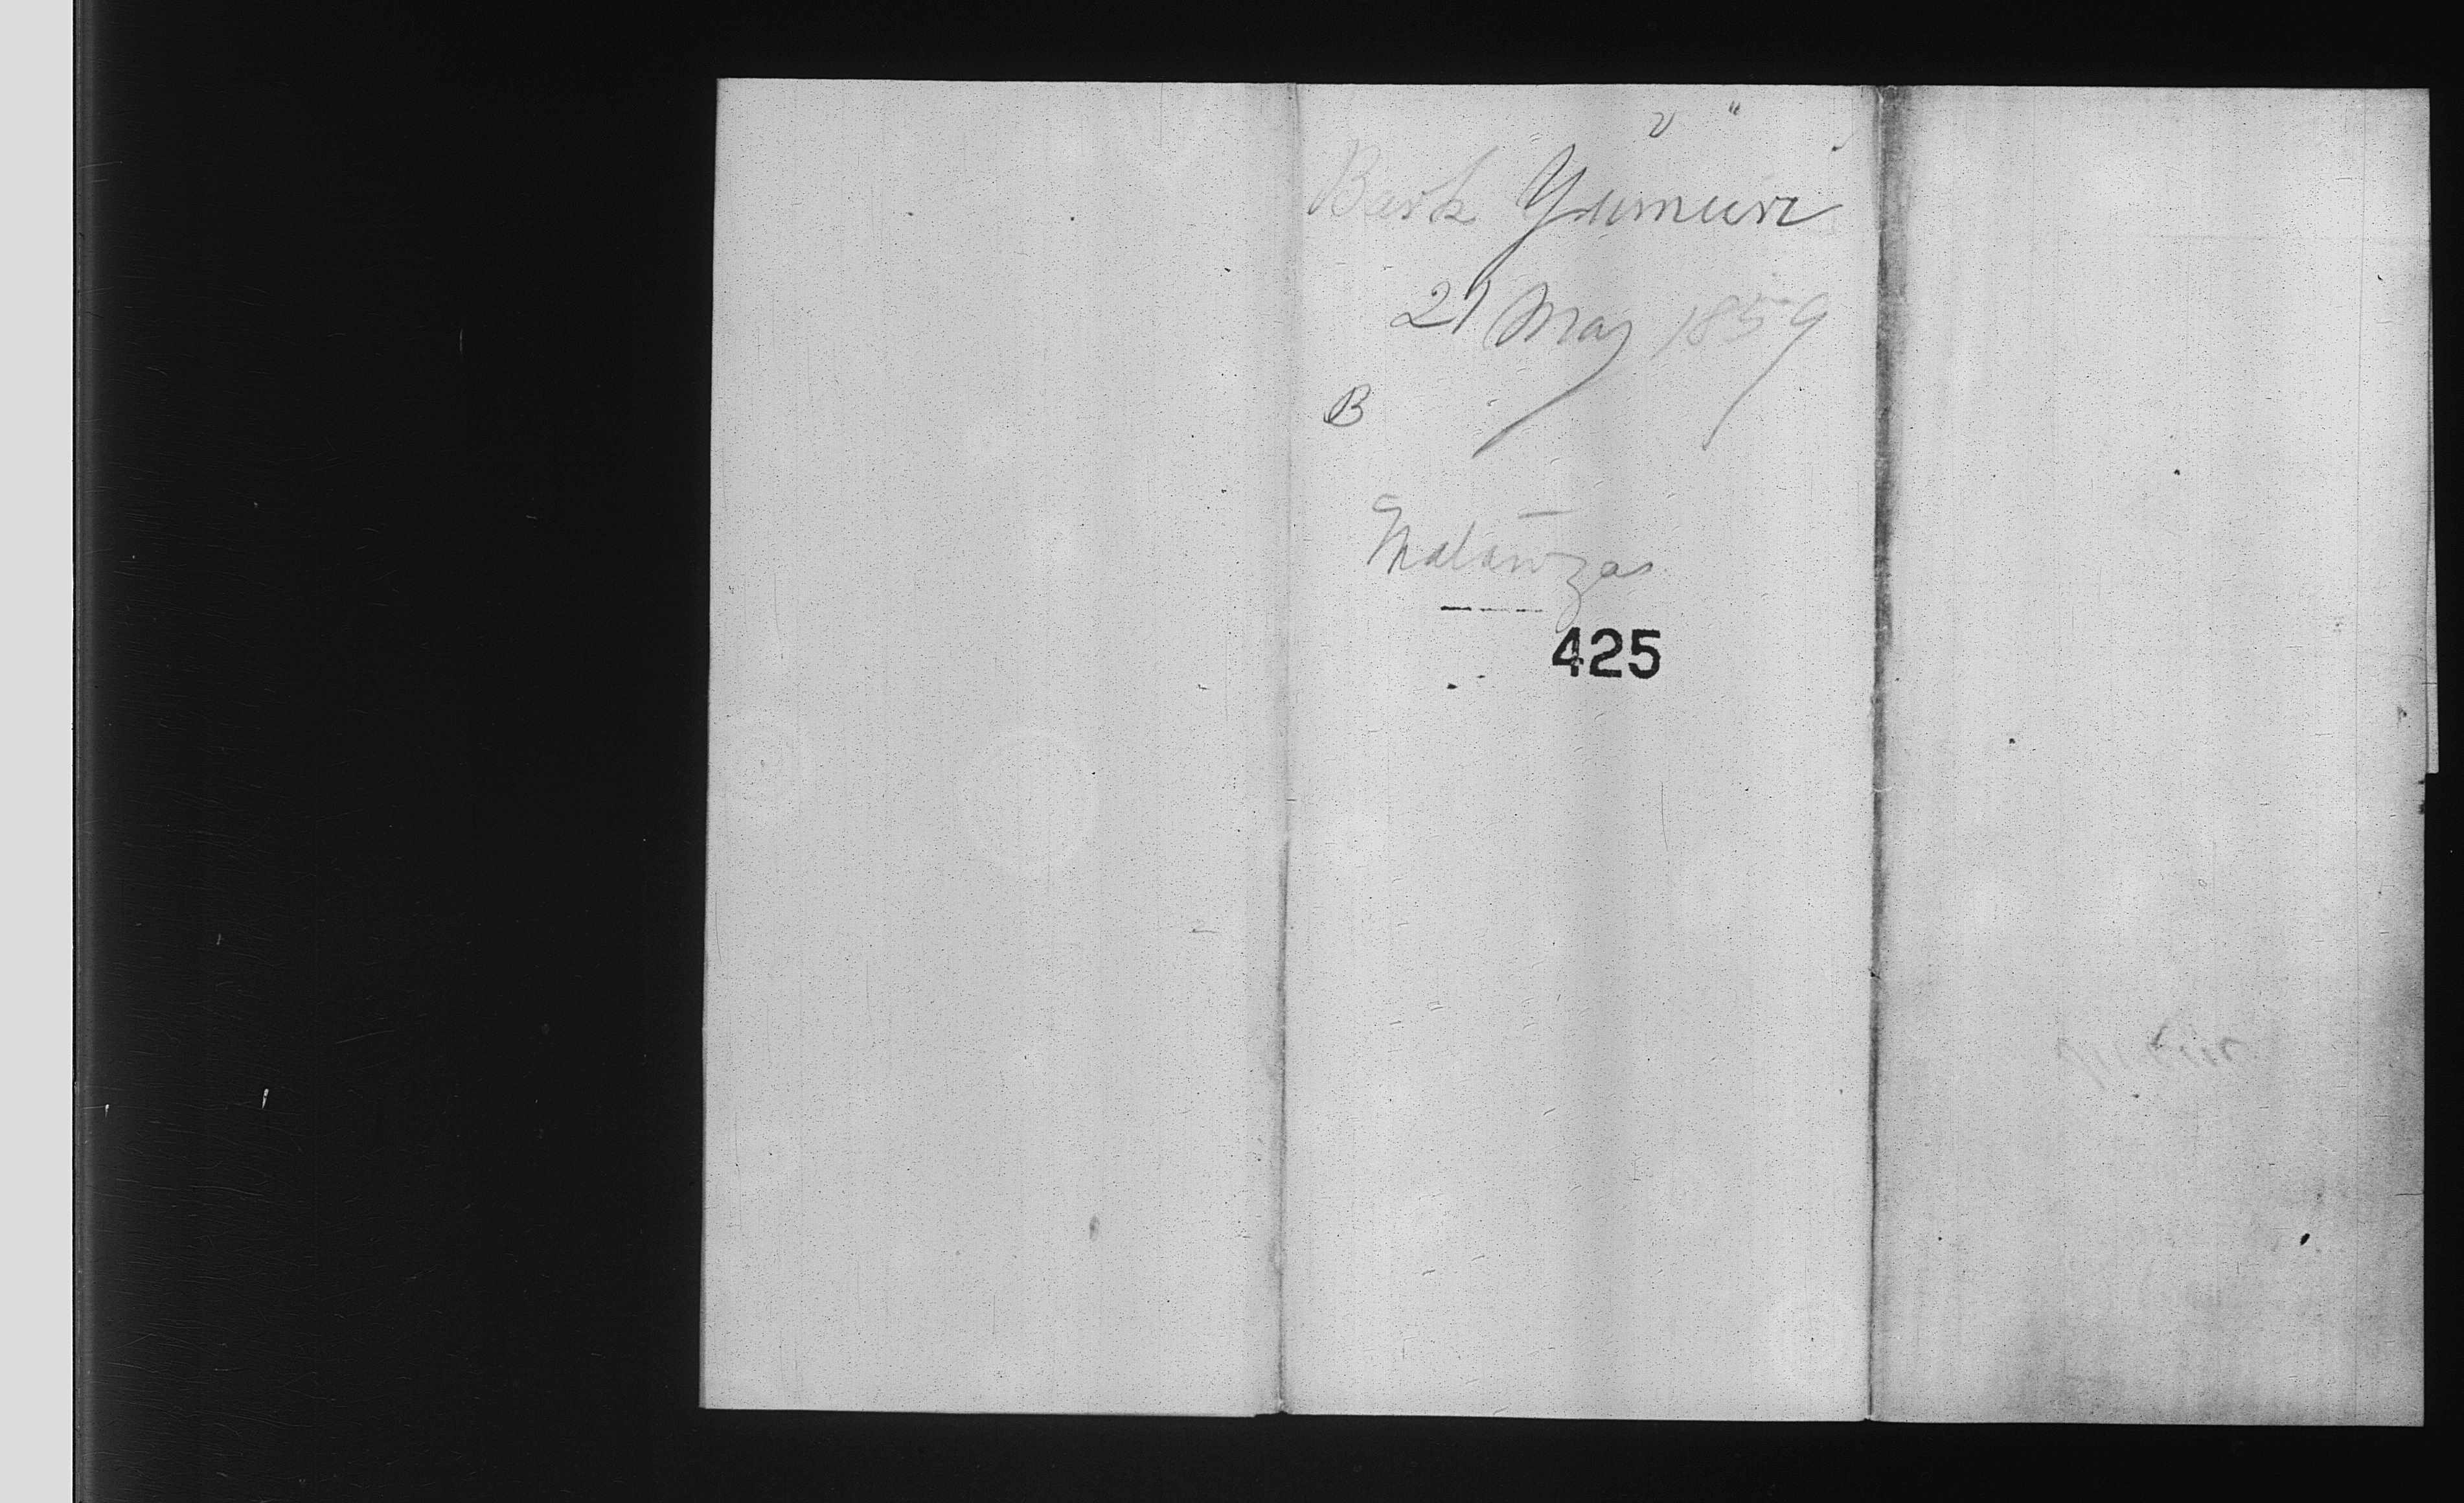 Bark Yumuri
21 May 1859
B
Matanzas
425